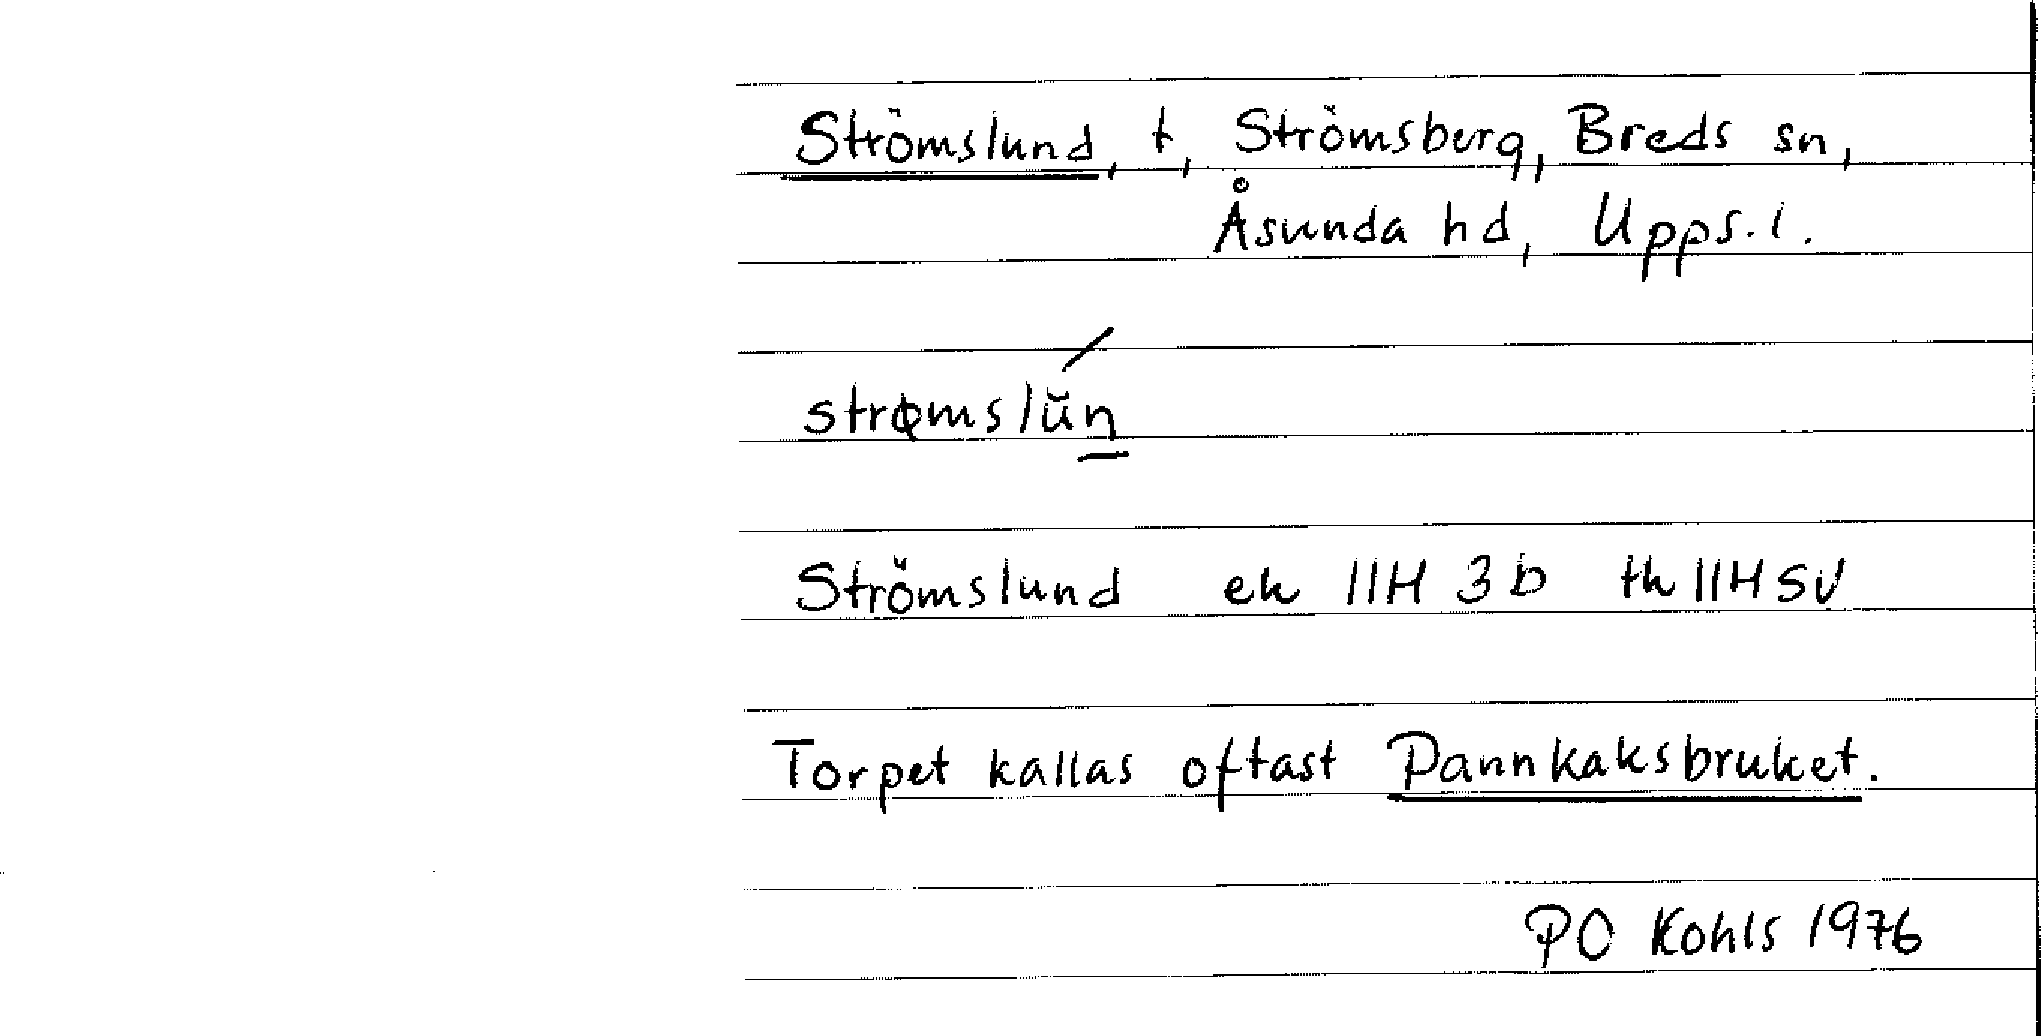 Strömslund, t, Strömsberg, Breds sn,
Åsunda hd, Upps. l.
strømslŭn
Strömslund ek 11H 3b tk 11H SV
Torpet kallas oftast Pannkaksbruket.
PO Kohls 1976